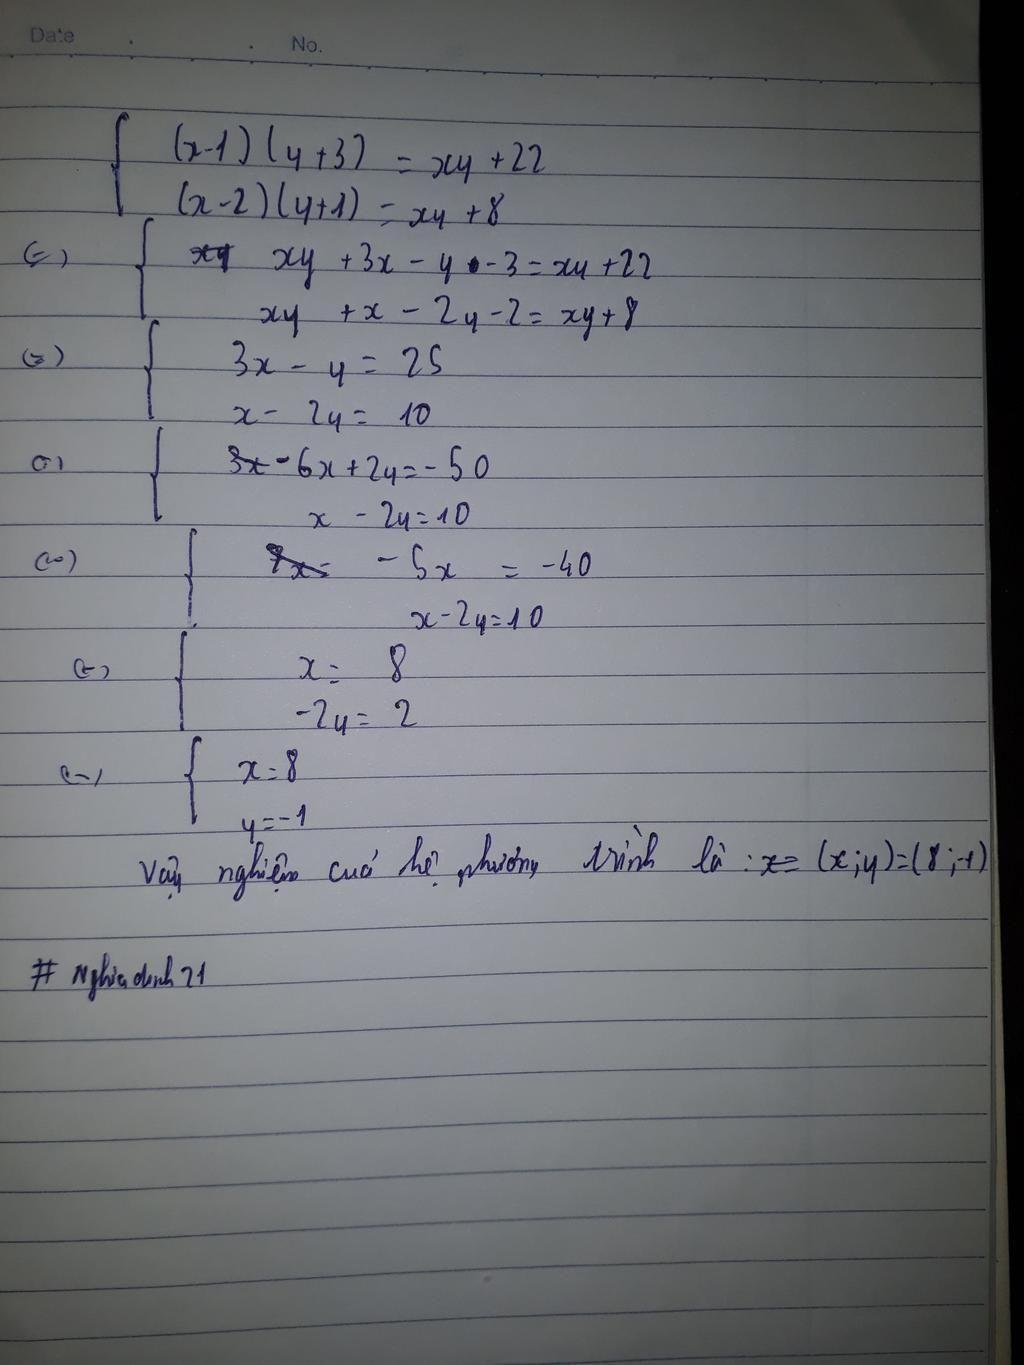 Date . . No.
(x-1)(y+3) = xy+22
(x-2)(y+1) = xy+8
(=) xy +3x - y -3 = xy+22
xy +x - 2y-2 = xy+8
(=) 3x - y = 25
x - 2y = 10
-6x+2y=-50
x - 2y=10
-5x = -40
x-2y=10
x = 8
-2y = 2
x=8
y=-1
Vậy nghiệm cuả hệ phương trình là: (x;y)=(8;-1)
# Nghiadinh21